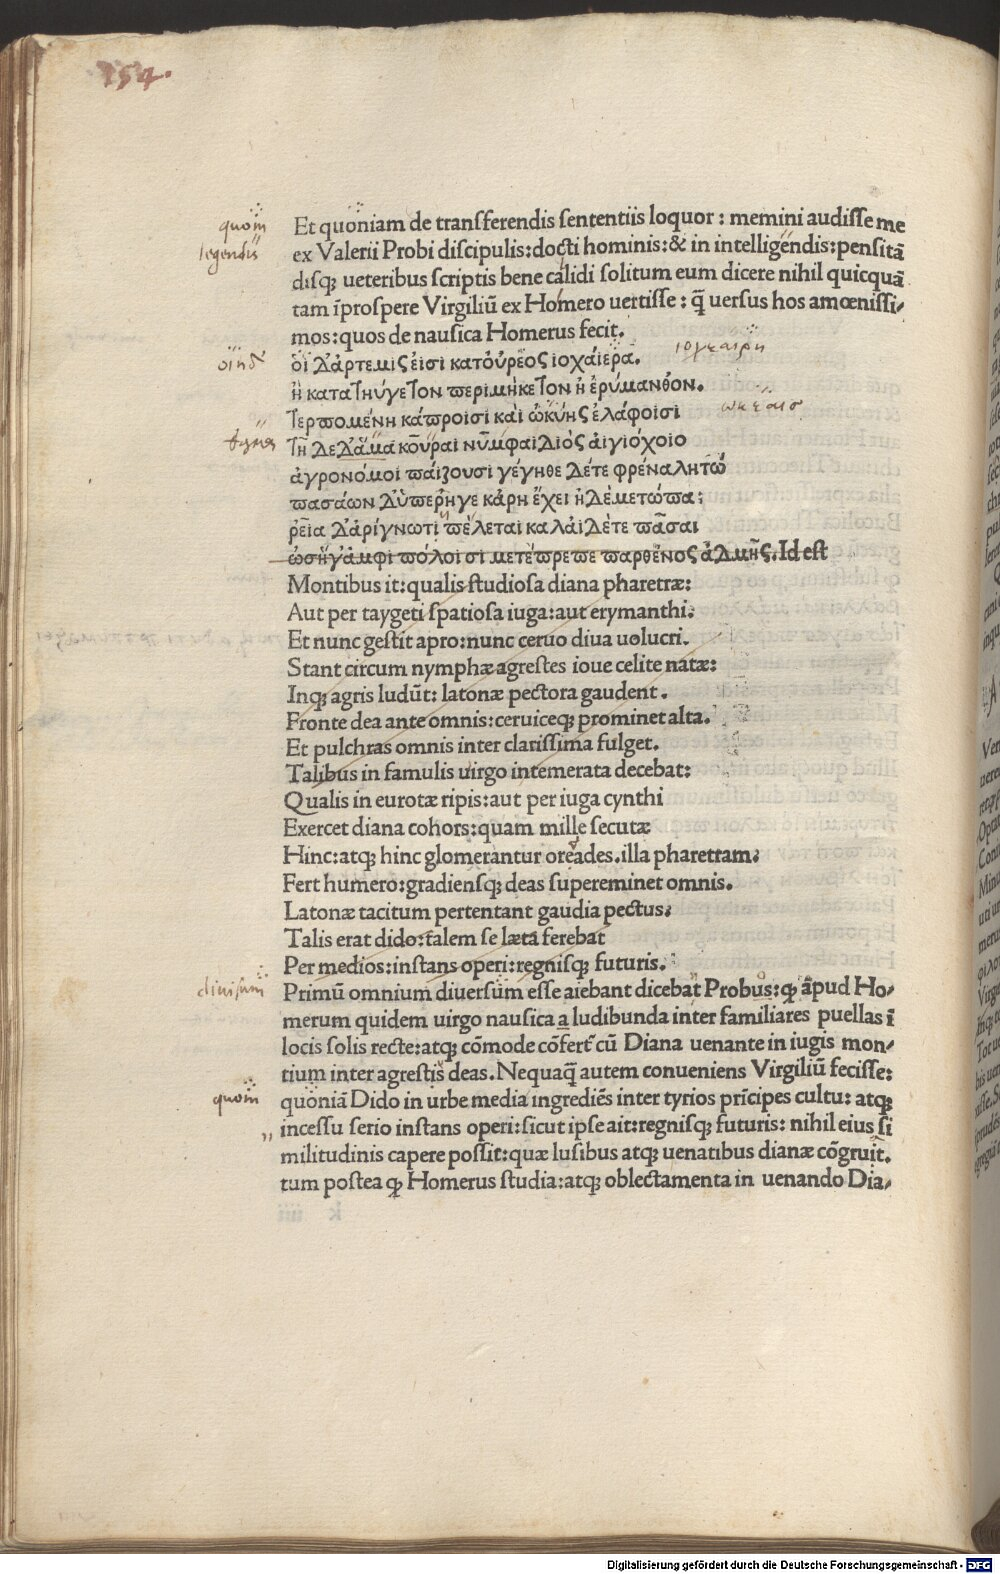 254.
Et quoniam de transferendis sententiis loquor : memini audisse me
quom
legendis
ex Valerii Probi discipulis:docti hominis:& in intelligendis:pensitā
disq; ueteribus scriptis bene calidi solitum eum dicere nihil quicquā
tam īprospere Virgiliū ex Homero uertisse : q̄ uersus hos amœnissi,
mos:quos de nausica Homerus fecit.
ὁἱ Δ'ἀρτεμις ἐισι κατ'ὀυρεος ιοχάιερα.
ιοχεαιρη
ἢ κατα τηύγετον περιμήκετον ἢ ἐρύμανθον.
τερπομένη κάπροισι και ὠκύης ελάφοισι
τῇ Δε Δάμα κοῦραι νῦμφαι Διὸς άιγιόχοιο
ἀγρονόμοι πάιζουσι γέγηθε Δέτε φρέναλητώ
πασάων Δ'ὑπερῆγε κάρη ἔχει ἠΔέ μετώπα:
ῥεῖα Δ'ἀρίγνωτι πέλεται καλάι Δέτε πᾶσαι
ὠσήγ'ἀμφι πόλοισι μετέπρεπε παρθένος ἀΔμής. Id est
Montibus it:qualis studiosa diana pharetræ:
Aut per taygeti spatiosa iuga:aut erymanthi:
Et nunc gestit apro:nunc ceruo diua uolucri.
Stant circum nymphæ agrestes ioue celite natæ:
Inq; agris ludūt: latonæ pectora gaudent .
Fronte dea ante omnis:ceruiceq; prominet alta.
Et pulchras omnis inter clarissima fulget.
Talibus in famulis uirgo intemerata decebat:
Qualis in eurotæ ripis:aut per iuga cynthi
Exercet diana cohors:quam mille secutæ
Hinc:atq; hinc glomerantur oreades.illa pharetram:
Fert humero:gradiensq; deas supereminet omnis.
Latonæ tacitum pertentant gaudia pectus:
Talis erat dido:talem se læta ferebat
Per medios:instans operi:regnisq; futuris.
diuisum
Primū omnium diuersum esse aiebant dicebat Probus:ꝙ apud Ho,
merum quidem uirgo nausica a ludibunda inter familiares puellas ī
locis solis recte:atq; cōmode cōfert cū Diana uenante in iugis mon,
tium inter agrestis deas. Nequaq̄ autem conueniens Virgiliū fecisse:
quom
quoniā Dido in urbe media ingrediēs inter tyrios prīcipes cultu: atq;
incessu serio instans operi:sicut ipse ait:regnisq; futuris: nihil eius si
militudinis capere possit:quæ lusibus atq; uenatibus dianæ cōgruit.
tum postea ꝙ Homerus studia:atq; oblectamenta in uenando Dia,
Digitalisierung gefördert durch die Deutsche Forschungsgemeinschaft - DFG